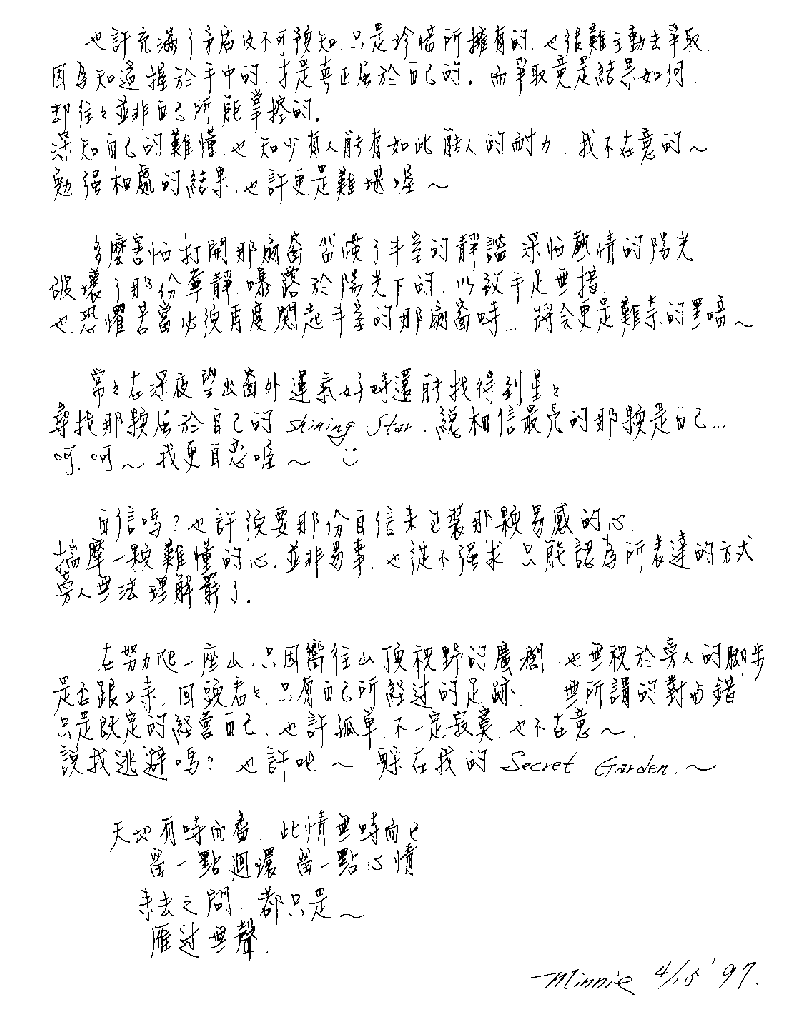 也許充滿了矛盾及不可預知，只是珍惜所擁有的，也很難主動去爭取，
因為知道握於手中的，才是真正屬於自己的。而爭取竟是結果如何，
却往々並非自己所能掌控的。
深知自己的難懂，也知少有人能有如此驗人的耐力，我不在意的～
勉强相處的結果，也許更是難堪喔～
多麼害怕打開那扇窗，習慣了斗室的靜謐，深怕熱情的陽光
破壞了那份寧靜，曝露於陽光下的，以致手足無措，
也恐懼若當必須再度關起斗室的那扇窗時…將會更是難奈的黑暗～
常々在深夜望出窗外，運氣好時還能找得到星々
尋找那顆屬於自己的 Shining Star，總相信最亮的那顆是自己…
呵，呵～我更自戀喔～
自信嗎？也許須要那份自信來包裝那顆易感的心，
揣摩一顆難懂的心，並非易事，也從不强求，只能認為所表達的方式
旁人無法理解罷了。
在努力爬一座山，只因嚮往山頂視野的廣闊，也無視於旁人的脚步
是否跟上來，回頭看々，只有自己所經过的足跡，無所謂的對與錯
只是既定的經營自己，也許孤單，不一定寂寞，也不在意～，
說我逃避嗎？也許吧～躲在我的 Secret Garden.～
天地有時而盡，此情無時而已
留一點迴還 留一點心情
來去之間，都只是～
雁过無聲.
Minnie 4/18 '97.